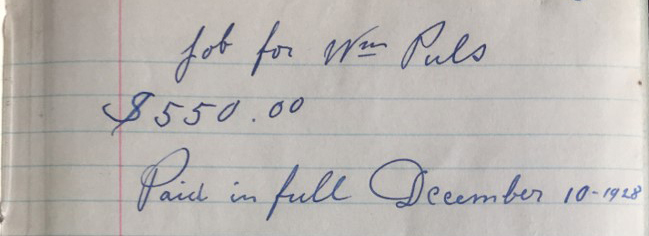 Job for Wm Puls
$550.00
Paid in full December 10-1928